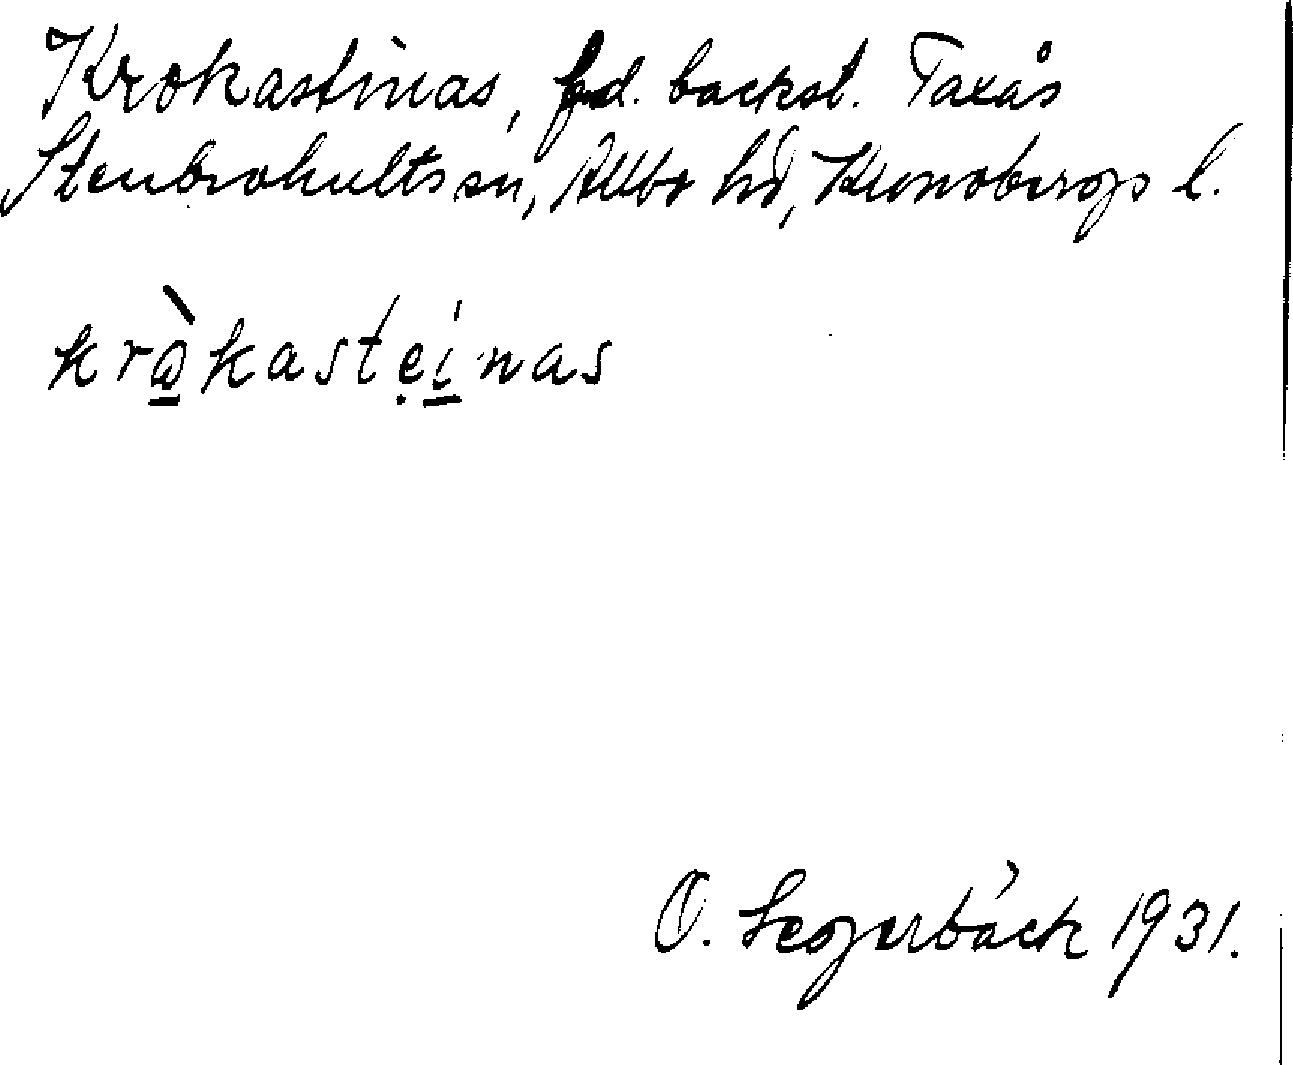 Krokastinas, fd. backst. Taxås
Stenbrohults sn, Allbo hd, Kronobergs l.
kròkasteinas
O. Segerbäck 1931.